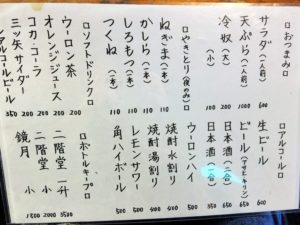 □おつまみ□
サラダ（一人前） 600
天ぷら（一人前） 1000
冷奴（大） 200
（小） 100
□やきとり（夜のみ）□
ねぎま（一本） 110
かしら（一本） 110
しろもつ（一本） 110
つくね（一本） 110
□ソフトドリンク□
ウーロン茶 200
オレンジジュース 200
コカ・コーラ 200
三ッ矢サイダー 200
ノンアルコールビール 350
□アルコール□
生ビール 600
ビール（アサヒ・キリン） 650
日本酒（二合） 650
日本酒（一合） 350
ウーロンハイ 400
焼酎水割り 400
焼酎湯割り 400
レモンサワー 500
角ハイボール 500
□ボトルキープ□
二階堂 一升 3500
二階堂 小 2000
鏡月 小 1500